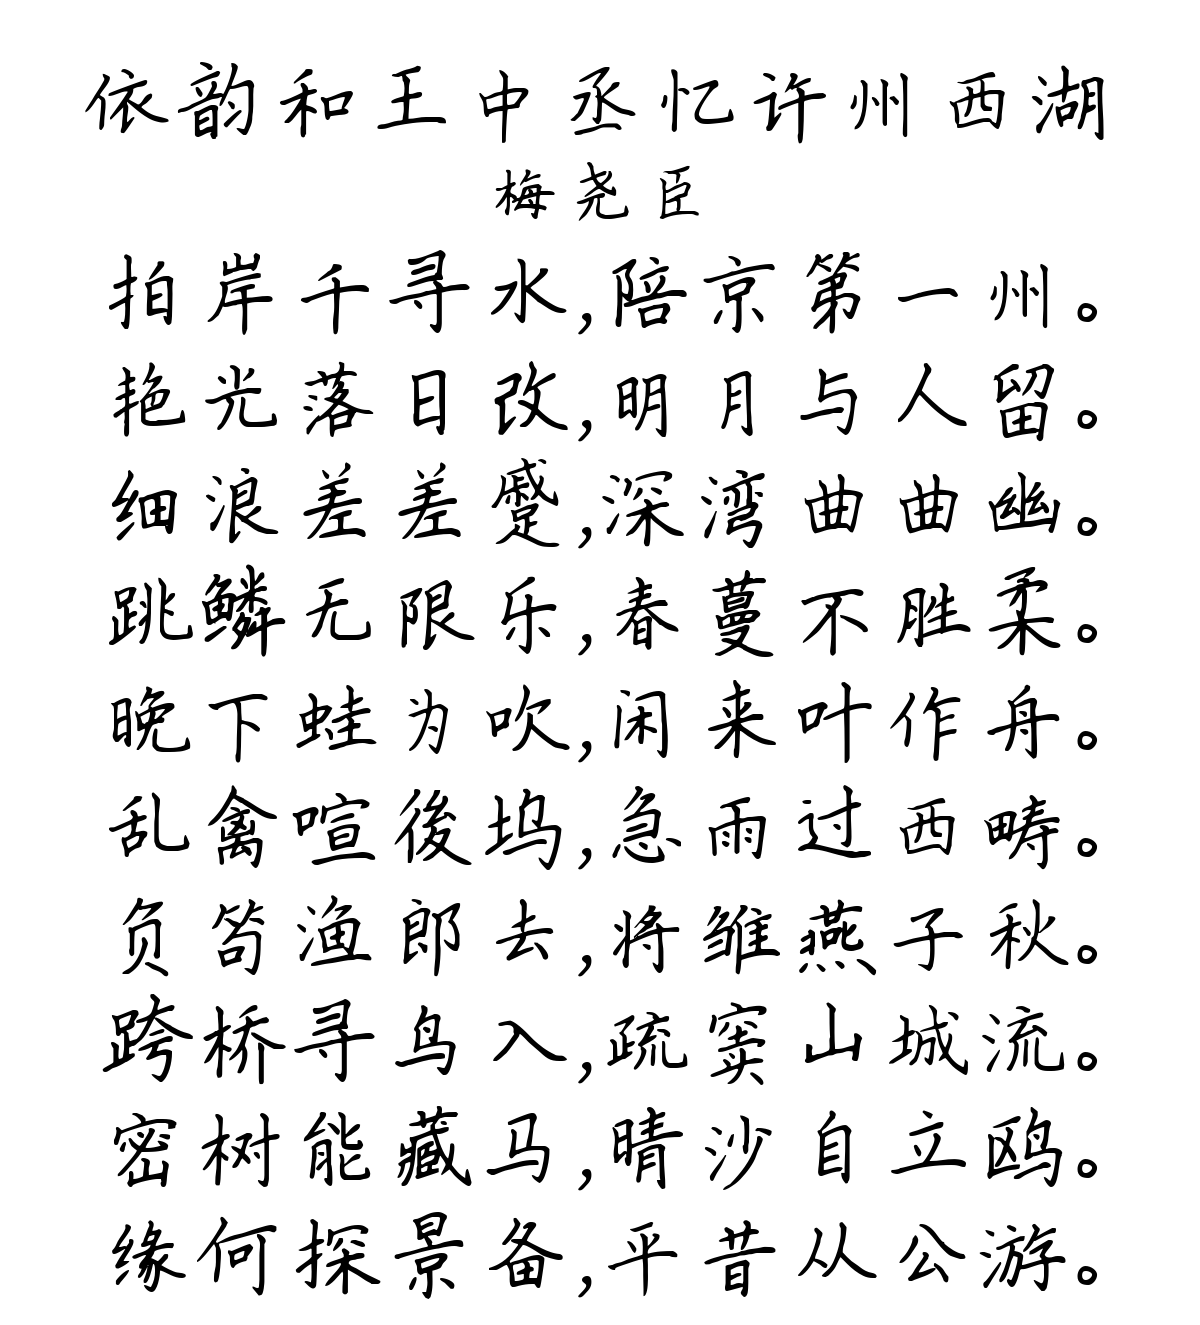 依韵和王中丞忆许州西湖
梅尧臣
拍岸千寻水,陪京第一州。
艳光落日改,明月与人留。
细浪差差蹙,深湾曲曲幽。
跳鳞无限乐,春蔓不胜柔。
晚下蛙为吹,闲来叶作舟。
乱禽喧後坞,急雨过西畴。
负笱渔郎去,将雏燕子秋。
跨桥寻鸟入,疏窦山城流。
密树能藏马,晴沙自立鸥。
缘何探景备,平昔从公游。